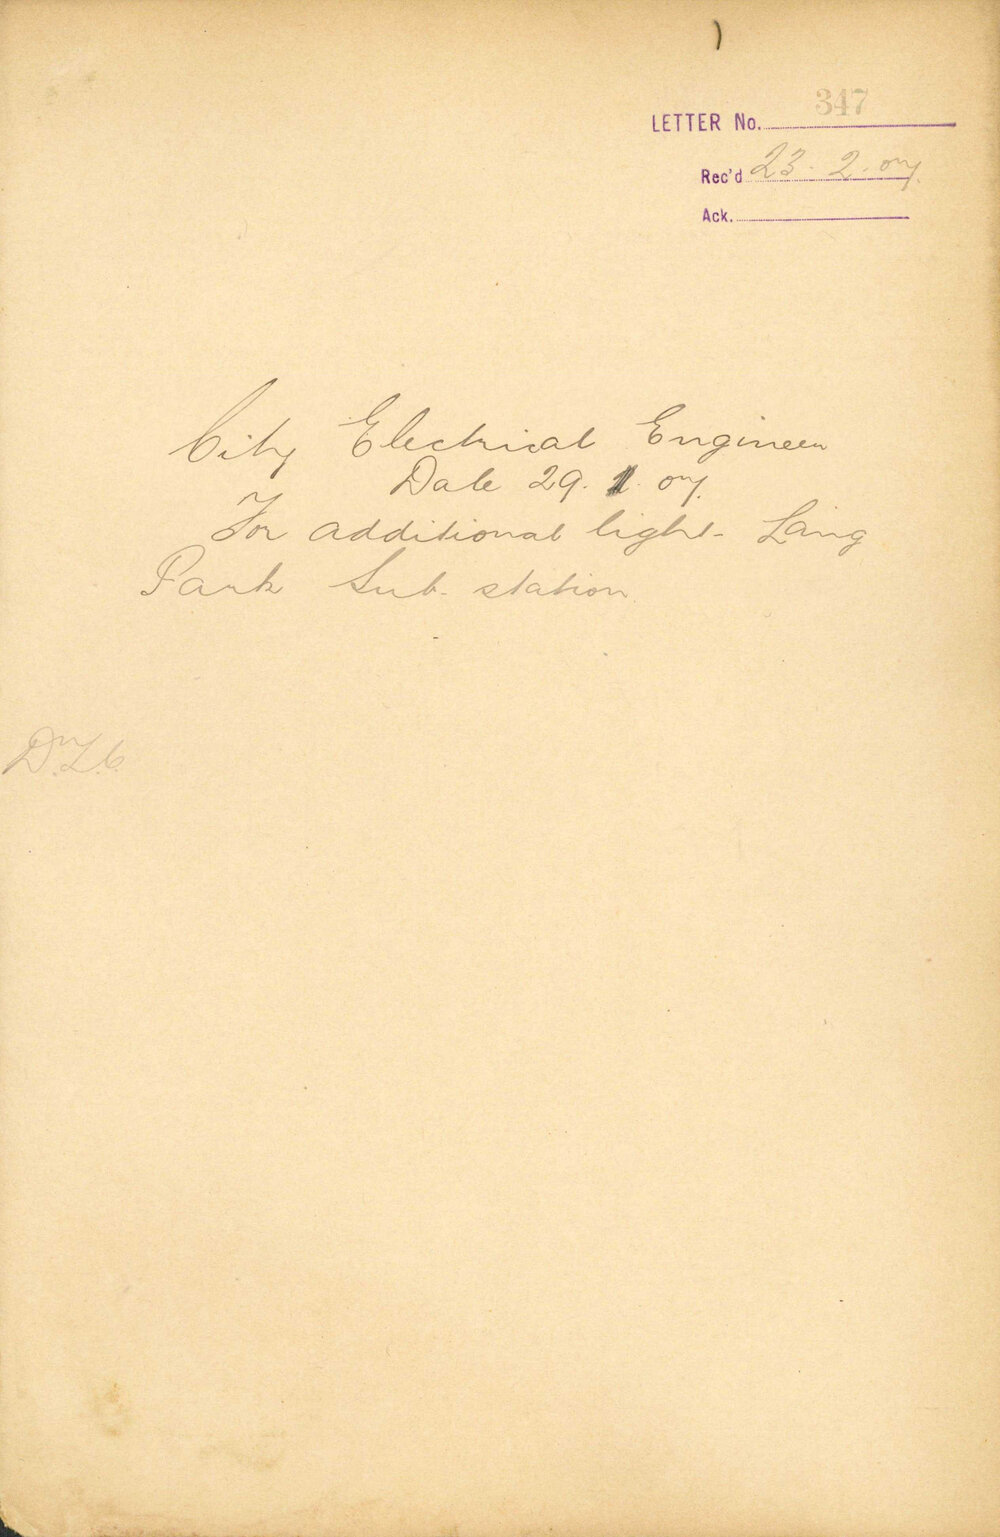 LETTER No. 347
Rec'd 23. 2. 07.
Ack.
City Electrical Engineer
Date 29. 1. 07.
For additional light - Laing
Park Sub-station